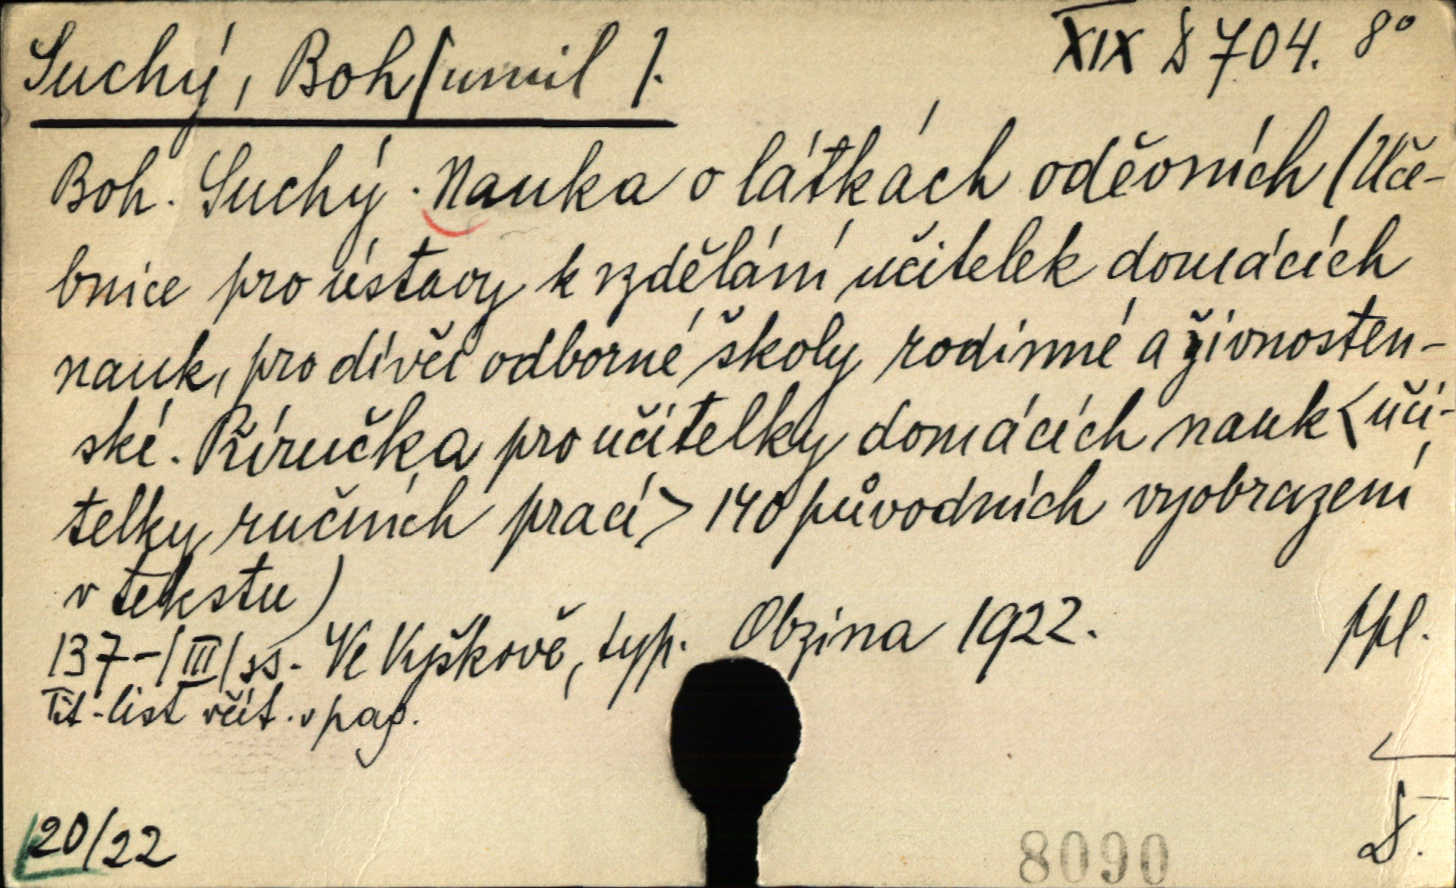 Suchý, Boh[umil].
XIX D 704. 8°
Boh. Suchý. Nauka o látkách oděvních (Uče-
bnice pro ústavy k vzdělání učitelek domácích
nauk, pro dívčí odborné školy rodinné a živnosten-
ské. Příručka pro učitelky domácích nauk <uči-
telky ručních prací> 140 původních vyobrazení
v tekstu)
137-/III/ss. Ve Vyškově, typ. Obzina 1922. ppl.
Tit-list včít. v pag.
20/22
8090